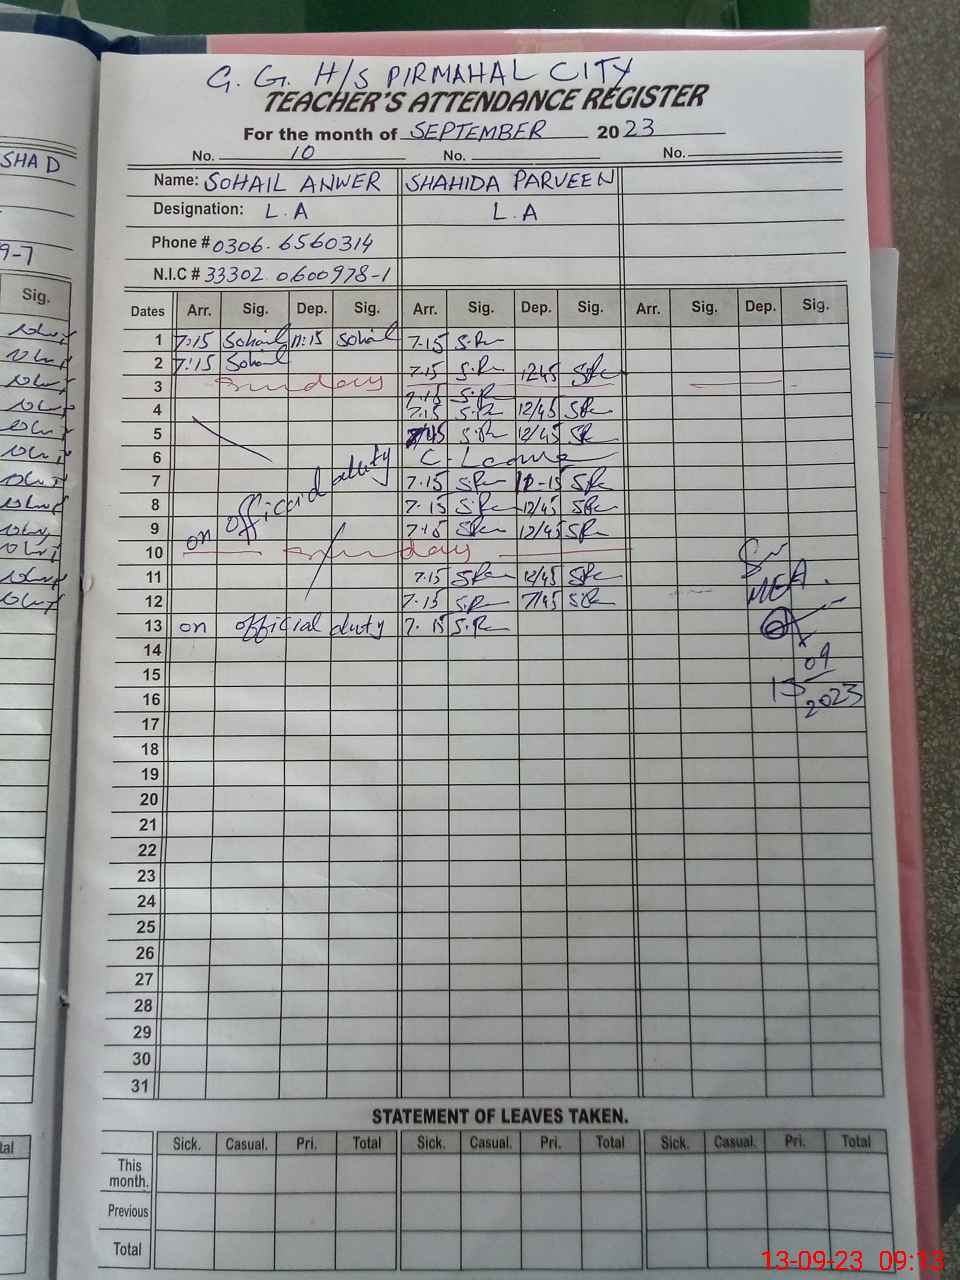 G. G. H/S PIRMAHAL CITY
TEACHER'S ATTENDANCE REGISTER
For the month of SEPTEMBER 2023
No. 10 No. No.
Name: SOHAIL ANWER SHAHIDA PARVEEN
Designation: L.A L.A
Phone # 0306.6560314
N.I.C # 33302 0600978-1
Dates Arr. Sig. Dep. Sig. Arr. Sig. Dep. Sig. Arr. Sig. Dep. Sig.
1 7:15 Sohail 11:15 Sohail 7.15
2 7:15 Sohail 7.15 1245
3 Sunday 7.15
4 7:15 12/45
5 12/45
6 C. Leave
7 7.15
8 7.15 12/45
9 7.15 12/45
on official duty
10 Sunday
11 7.15 12/45
12 7.15 7/45
13 on official duty 7.15
MEA.
13 09 2023
14
15
16
17
18
19
20
21
22
23
24
25
26
27
28
29
30
31
STATEMENT OF LEAVES TAKEN.
Sick. Casual. Pri. Total Sick. Casual. Pri. Total Sick. Casual. Pri. Total
This month.
Previous
Total
SHAD
9-7
Sig.
tal
13-09-23 09:13